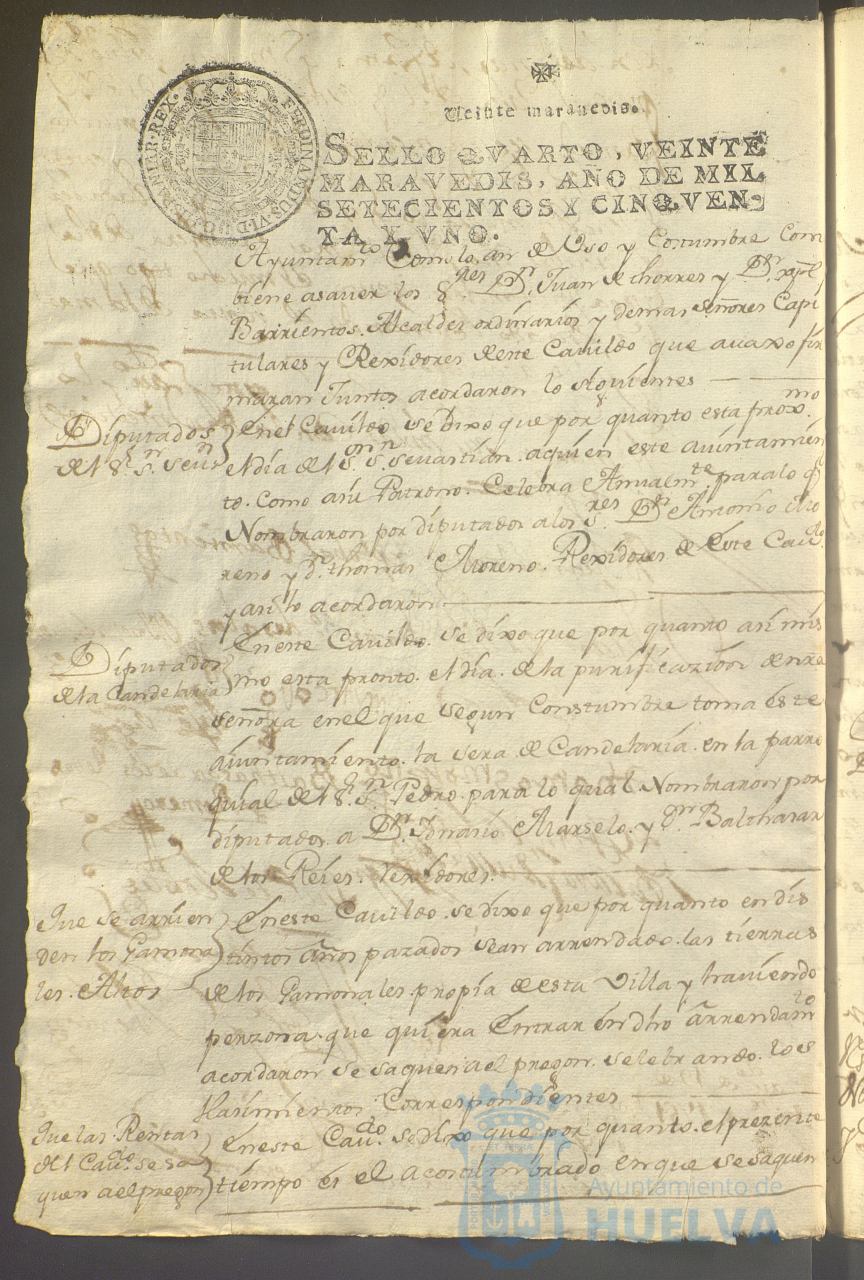 FERDINANDUS.VI.D.G.HISPANIAR.REX.
Veinte maravedis.
SELLO QVARTO, VEINTE
MARAVEDIS, AÑO DE MIL
SETECIENTOS Y CINQVEN-
TA Y VNO.
Ayuntamto Como lo an de Uso y Costumbre Com
biene asaver los Sres Dn Juan de thorres y Dn
Barrientos. Alcaldes ordinarios y demas señores Capi
tulares y Rexidores deste Cavildo que avaxo fir
maran Juntos acordaron lo siguiente
Diputados
del Sr Sn Sevn
Enel Cavildo se dixo que por quanto esta proxmo
el dia del Sor Sn Sevastian. aquien este aiuntamien
to. como asu Patrono. Celebra Anualmte para lo q
Nombraron por diputados alos Sres Dn Antonio Mo
reno y Dn thomas Moreno. Rexidores de Este Cavdo
y asi lo acordaron
Diputados
de la Candelaria
En este Cavildo. se dixo que por quanto asi mis
mo esta pronto. el dia. de la purificazion de nra
señora enel que segun Constumbre toma este
aiuntamiento. la sera de Candelaria. en la parro
quial del Sr Sn Pedro. para lo qual Nombraron por
diputados. a Dn Marselo. y Dn Balthasar
de los Reies. rexidores.
Que se arrien
den los Gamona
les. Altos
En este Cavildo. se dixo que por quanto en dis
tintos años pasados sean arrendado. las tierras
de los Gamonales. propia de esta Villa y haviendo
perzona. que quiera Entrar en dho arrendamto
acordaron se saquen ael pregon. selebrando. los
Hasimientos Correspondientes
Que las Rentas
del Cavdo se sa
quen ael pregon
En este Cavdo se dixo que por quanto. el prezente
tiempo es el acostumbrado en que se saquen
Ayuntamiento de
HUELVA